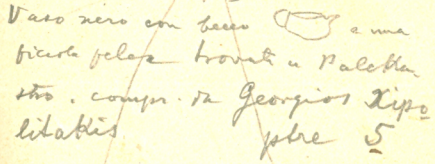 Vaso nero con becco e una
piccola pelex trovati a Palekka-
stro. compr. da Georgios Xipo
litakis ptre 5